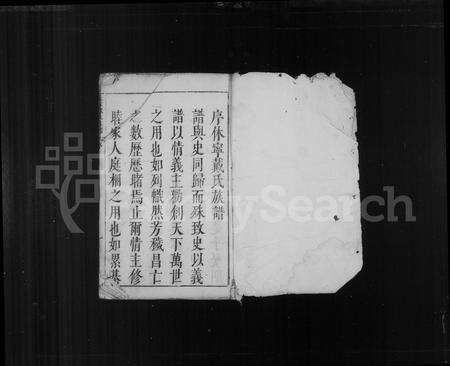 序休寧戴氏族譜
譜與史同歸而殊致史以義
譜以情義主勸創天下萬世
之用也如列幟然芳穢昌亡
之數歷歷睹焉止爾情主修
睦家人庭桐之用也如累基
MySearch